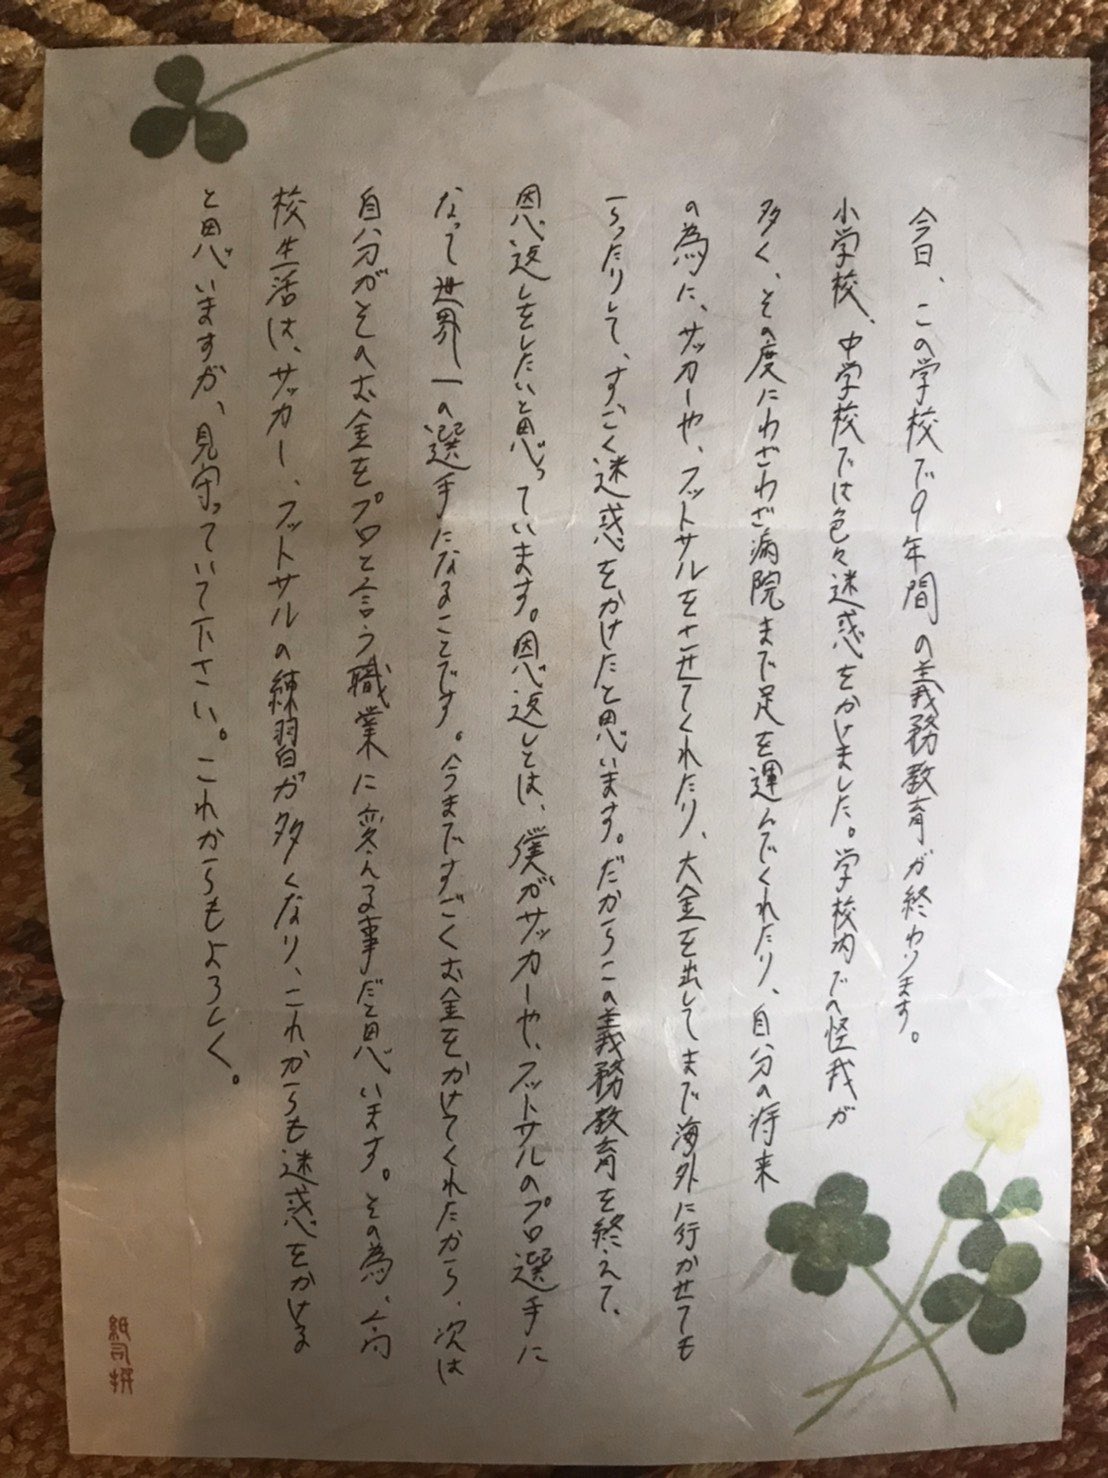 今日、この学校で9年間の義務教育が終わります。
小学校、中学校では色々迷惑をかけました。学校内での怪我が
多く、その度にわざわざ病院まで足を運んでくれたり、自分の将来
の為に、サッカーや、フットサルをさせてくれたり、大金を出してまで海外に行かせても
らったりして、すごく迷惑をかけたと思います。だからこの義務教育を終えて、
恩返しをしたいと思っています。恩返しとは、僕がサッカーや、フットサルのプロ選手に
なって世界一の選手になることです。今まですごくお金をかけてくれたから、次は
自分がそのお金をプロと言う職業に変える事だと思います。その為、高
校生活は、サッカー、フットサルの練習が多くなり、これからも迷惑をかける
と思いますが、見守っていて下さい。これからもよろしく。